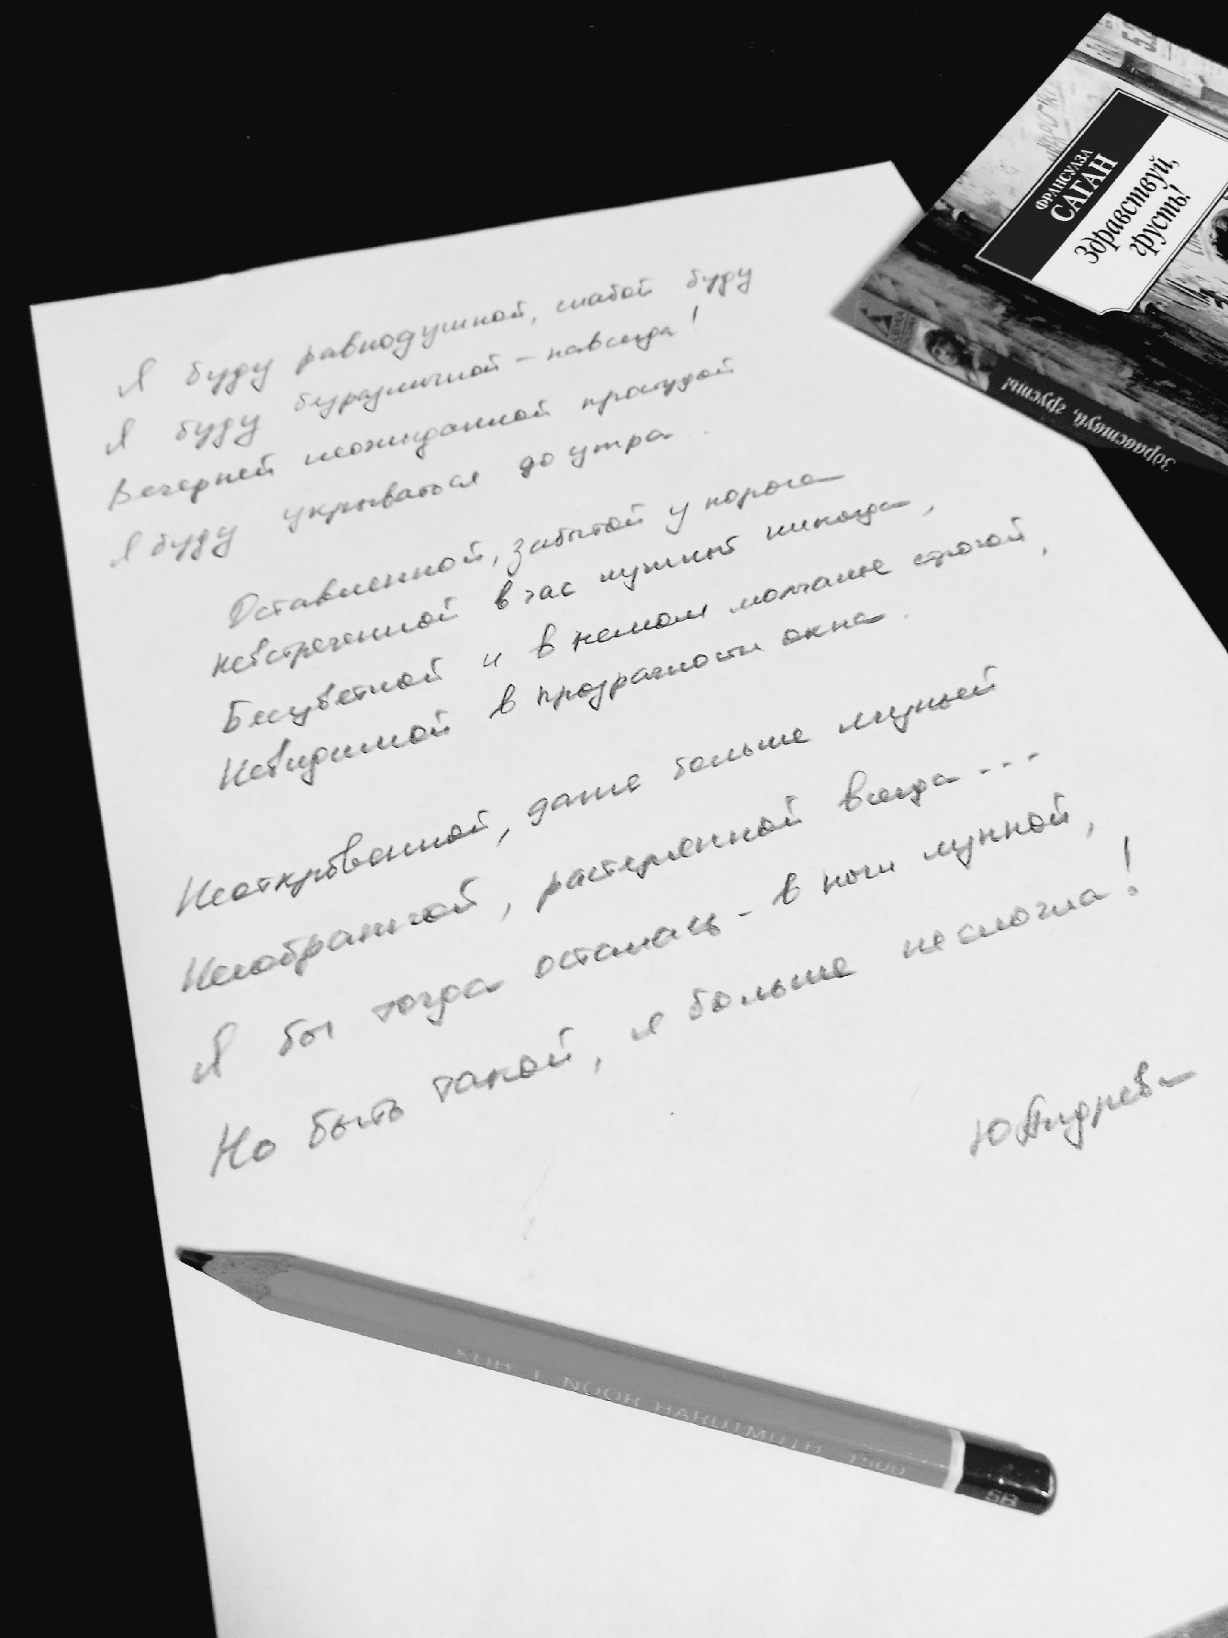 Я буду равнодушной, слабой буду
Я буду безразличной - навсегда!
Вечерней неожиданной простудой
Я буду укрываться до утра.
Оставленной, забытой у порога
Невстреченной в час лунный никогда,
Бесцветной и в немом молчанье строгой,
Невидимой в прозрачности окна.
Неоткровенной, даже больше лишней
Несобранной, растерянной всегда...
Я бы тогда осталась - в ночи лунной,
Но быть такой, я больше не смогла!
ФРАНСУАЗА
САГАН
Здравствуй,
грусть!
Здравствуй, грусть!
KOH-I-NOOR HARDTMUTH 1500